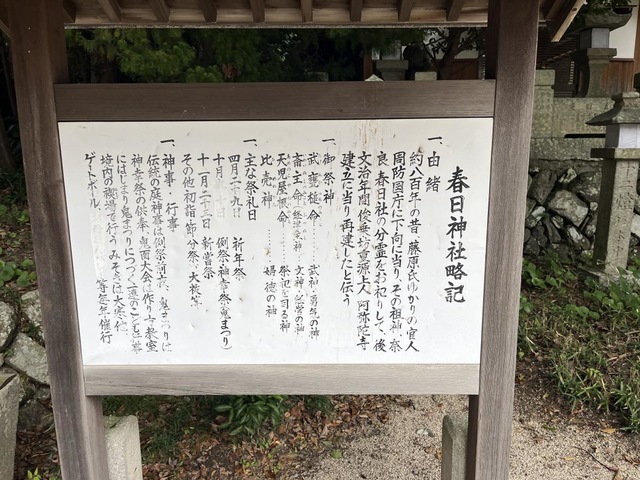 春日神社略記
一、由緒
約八百年の昔、藤原氏ゆかりの官人
周防国庁に下向に当り、その祖神、奈
良、春日社の分霊をお祀りして、後
文治年間俊乗坊重源上人、阿弥陀寺
建立に当り再建したと伝う
一、御祭神
武甕槌命 武神・勇気の神
斎主命 文神・経営の神
天児屋根命 祭祀を司る神
比売神 婦徳の神
一、主な祭礼日
四月二十九日 祈年祭
十月 例祭・神幸祭(鬼まつり)
十一月二十三日 新嘗祭
その他初詣・節分祭・大祓等
一、神事・行事
伝統の庭神事は例祭前夜、鬼まつりは
神幸祭の供奉、鬼面大会は作り方教室
にはじまり鬼まつりにつづく
境内の 行う 大寒 他
ゲートボール 等毎年催行